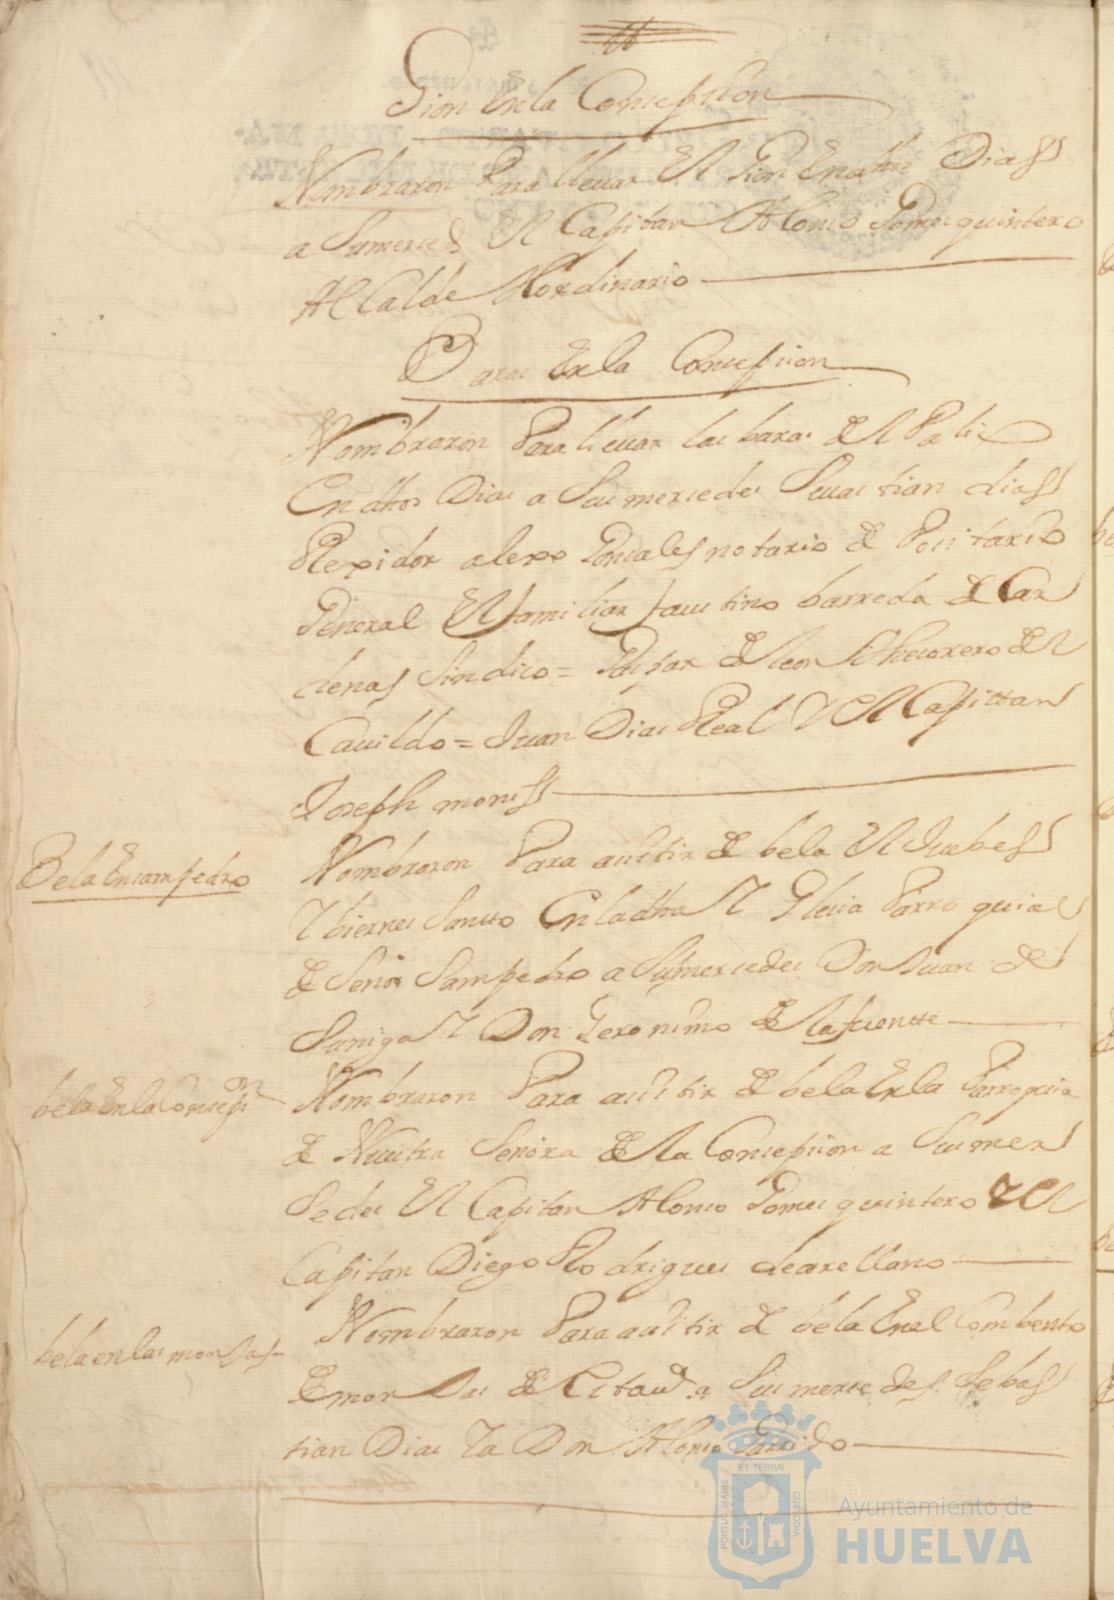 Gion En la Concepcion
Nombraron Para lleuar El Gion En dhos Dias
a Sumerced El Capitan Alonso Gomes quintero
Alcalde Hordinario
Baras En la Concepcion
Nombraron Para lleuar las baras del Palio
En dhos Dias a Sus mersedes Seuastian dias
Rexidor alexo Gonsales notario de Pocitario
General El familiar faustino barreda de Car
denas Sindico = Gaspar de leon Thesorero del
Cauildo = Juan Dias Real Y El Capittan
Joseph monis
Bela En sampedro
Nombraron Para asistir de bela El Juebes
Y biernes Santto En la dha Yglesia Parroquia
de Señor Sampedro a Sus mersedes Don Juan de
Suniga Y Don Geronimo de la fuentte
bela En la Concepon
Nombraron Para asistir de bela En la Parroquia
de Nuestra Señora de la Concepcion a Sus mer
sedes El Capitan Alonso Gomes quintero Y El
Capitan Diego Rodrigues de arellano
bela en las monjas
Nombraron Para asistir de bela En el Combento
de monjas de Esta a Sus mersedes Sebas
tian Dias Y a Don Alonso Garrido
ET TERRÆ
PORTUS MARIS
CUSTODIA
Ayuntamiento de
HUELVA